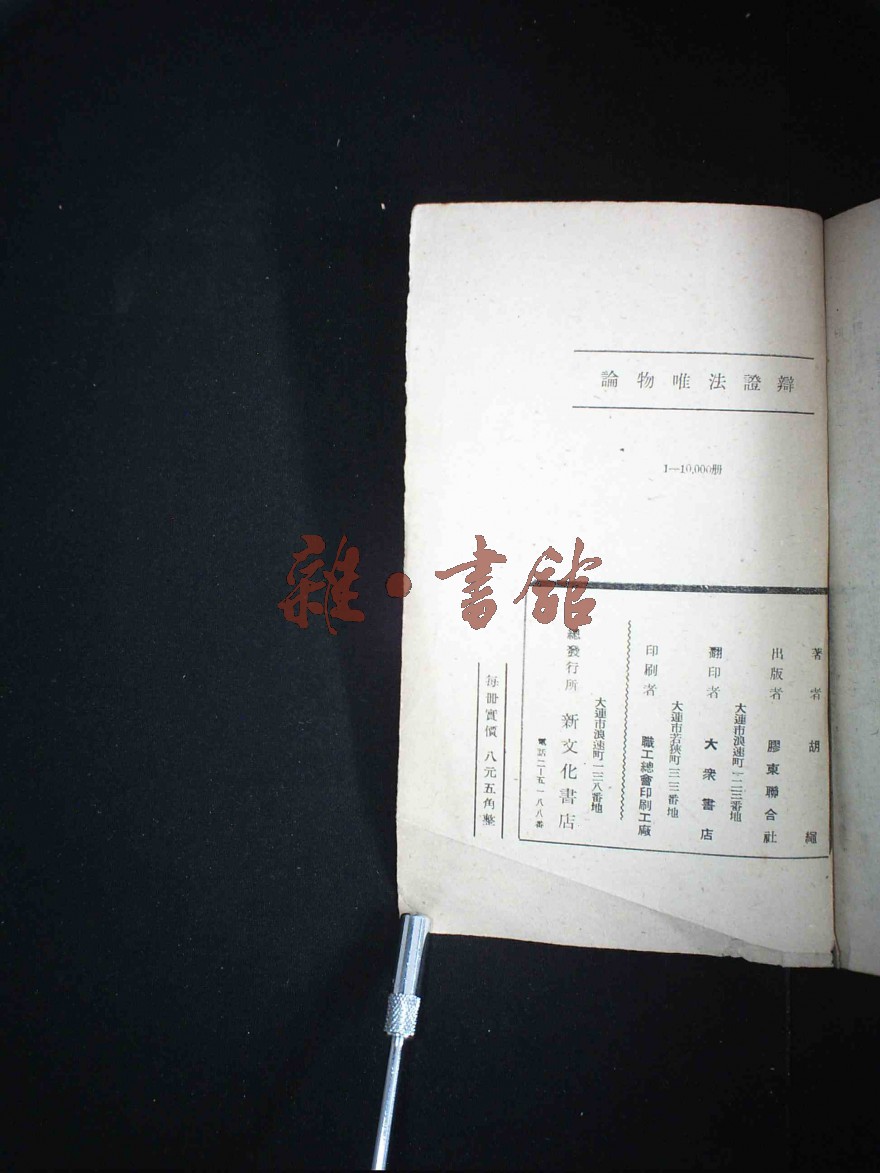 論物唯法證辯
1—10,000册
著者 胡繩
出版者 膠東聯合社
大連市浪速町一二三番地
翻印者 大衆書店
大連市若狹町一三三番地
印刷者 職工總會印刷工廠
大連市浪速町一三八番地
總發行所 新文化書店
電話二—五一八八番
每冊實價 八元五角整
雜·書館